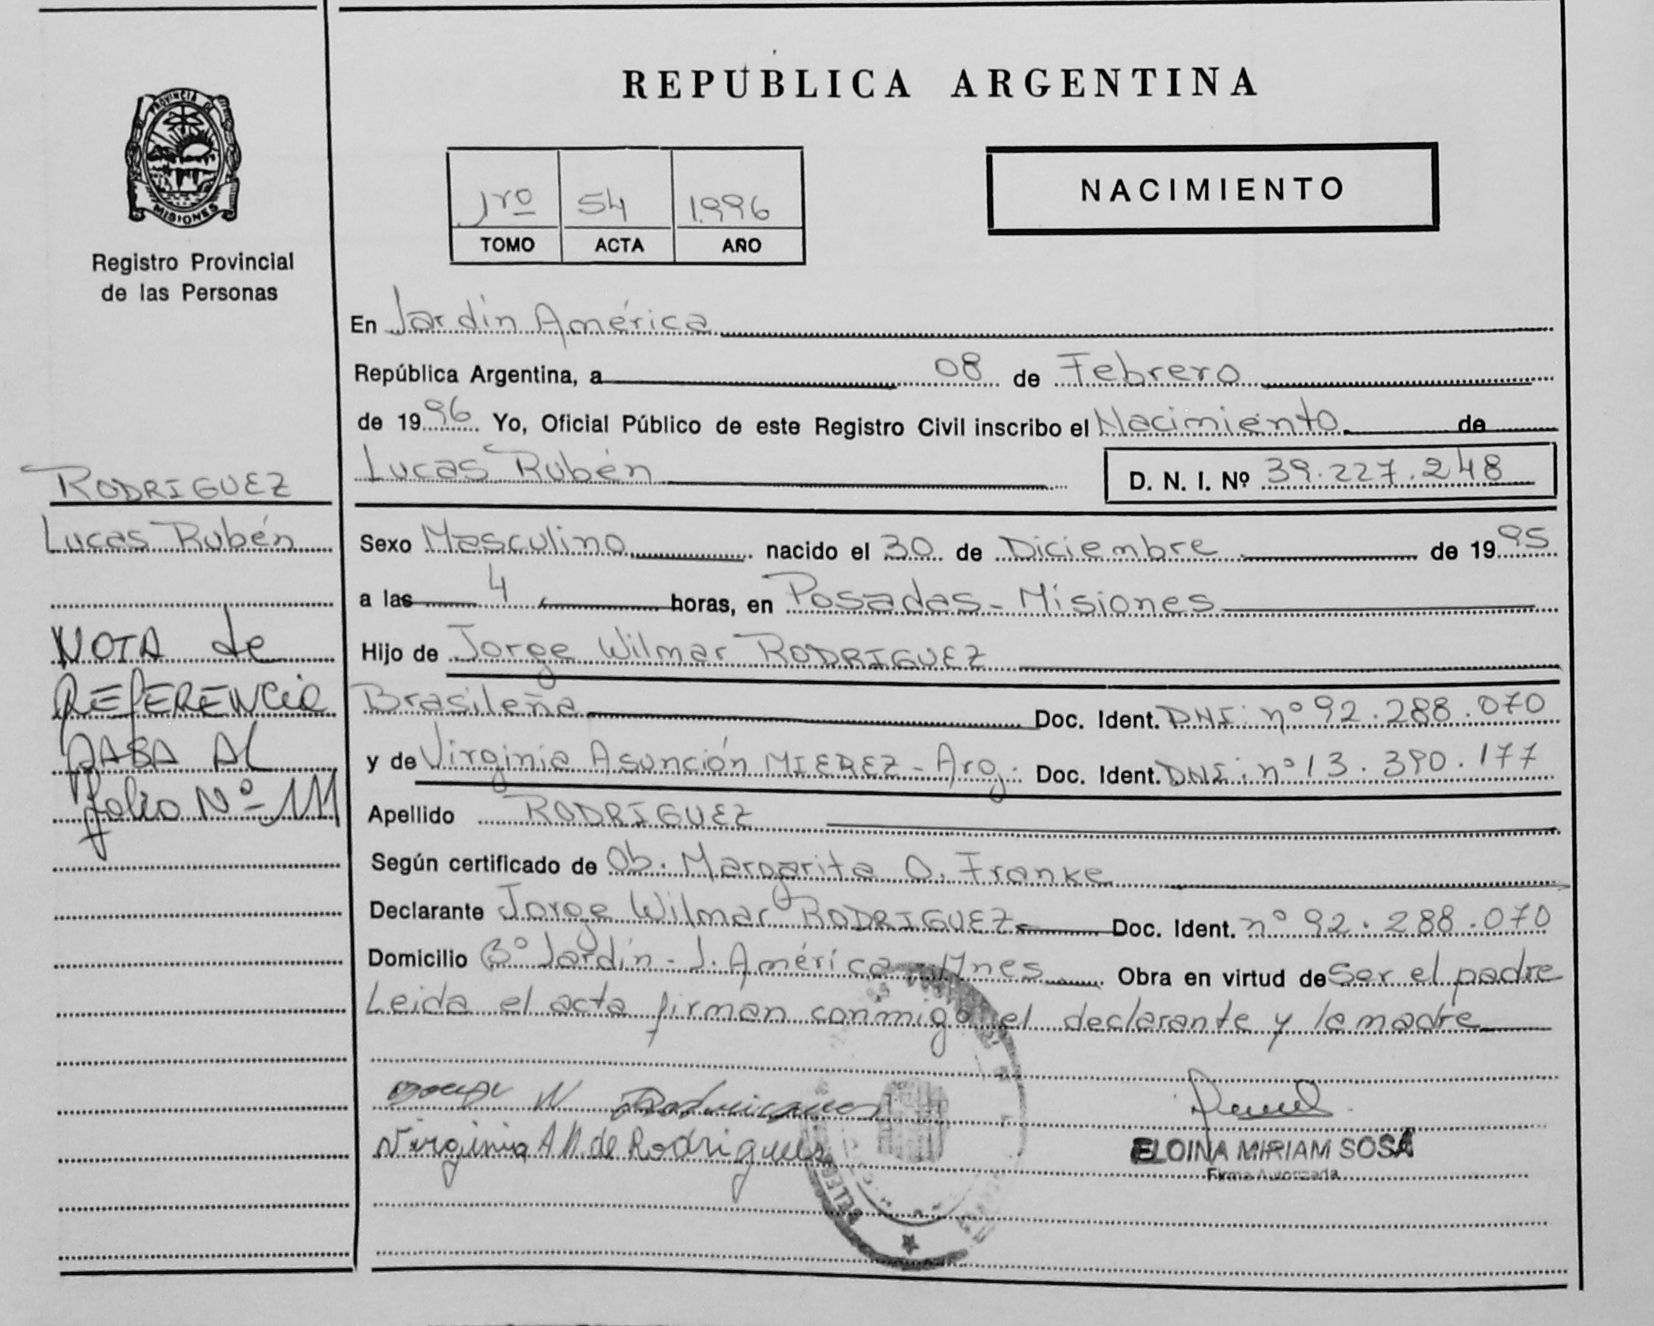 REPUBLICA ARGENTINA
PROVINCIA DE
MISIONES
Registro Provincial
de las Personas
1ro 54 1996
TOMO ACTA AÑO
NACIMIENTO
En Jardín América
República Argentina, a 08 de Febrero
de 1996 Yo, Oficial Público de este Registro Civil inscribo el Nacimiento de
Lucas Rubén D. N. I. Nº 39.227.248
RODRIGUEZ
Lucas Rubén
NOTA de
REFERENCIA
PASA AL
folio Nº-111
Sexo Masculino nacido el 30 de Diciembre de 1995
a las 4 horas, en Posadas - Misiones
Hijo de Jorge Wilmar RODRIGUEZ
Brasileña Doc. Ident. DNI: nº 92.288.070
y de Virginia Asunción MIEREZ - Arg. Doc. Ident. DNI: nº 13.390.177
Apellido RODRIGUEZ
Según certificado de Ob. Margarita O. Franke
Declarante Jorge Wilmar RODRIGUEZ Doc. Ident. nº 92.288.070
Domicilio Bº Jardín - J. América - Mnes Obra en virtud de Ser el padre
Leida el acta firman conmigo el declarante y la madre
Virginia A M. de Rodriguez
ELOINA MIRIAM SOSA
Firma Autorizada